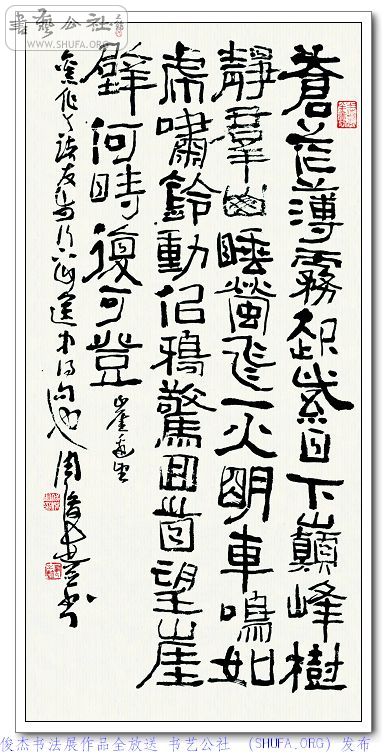 書藝公社
WWW.SHUFA.ORG
蒼茫薄霧起紫日下巔峰樹
靜羣幽睡螢飛一火明車鳴如
虎嘯鈴動似鴉驚回首望崖
壁何時復可登
周俊杰并书
俊杰书法展作品全放送 书艺公社 (SHUFA.ORG) 发布